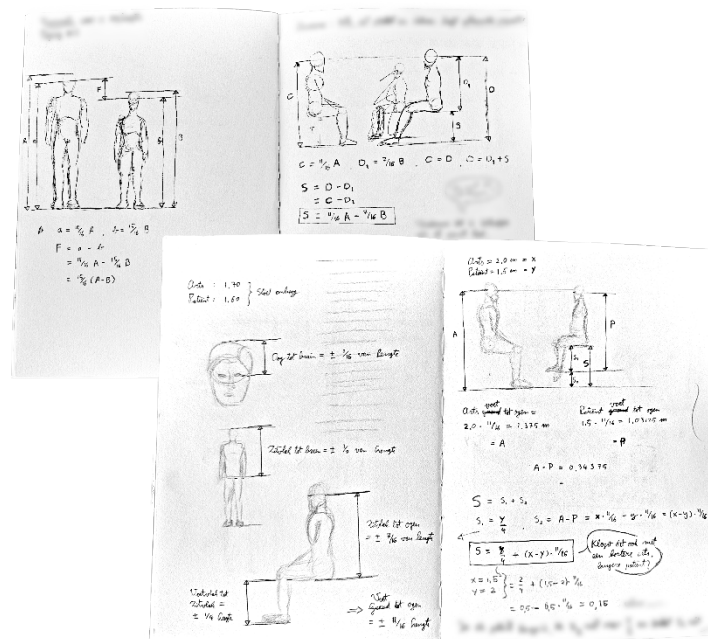 A
a
F
b
B
a = 15/16 A , b = 15/16 B
F = a - b
= 15/16 A - 15/16 B
= 15/16 (A-B)
C
D₁
S
D
C = 11/16 A , D₁ = 7/16 B , C = D , D = D₁ + S
S = D - D₁
= C - D₁
S = 11/16 A - 7/16 B
Arts : 1,70
Patient : 1,60
Stoel omhoog
Oog tot kruin = ± 1/16 van lengte
Zitvlak tot ogen
= ± 7/16 van lengte
Voetvlak tot
Zitvlak =
± 1/4 lengte
tot ogen
= ± 11/16 van lengte
Arts = 2,0 m = x
Patient = 1,5 m = y
A
P
S₁
S
S₂
Arts voet tot ogen =
2,0 · 11/16 = 1,375 m
= A
Patient voet tot ogen
1,5 · 11/16 = 1,03125 m
= P
A-P = 0,34375
S = S₁ + S₂
S₁ = y/4 , S₂ = A-P = x · 11/16 - y · 11/16 = (x-y) · 11/16
S = y/4 + (x-y) · 11/16
Klopt dit ook met
een kortere arts,
langere patient?
x = 1,5
y = 2
= 2/4 + (1,5-2) · 11/16
= 0,5 - 0,5 · 11/16 = 0,15